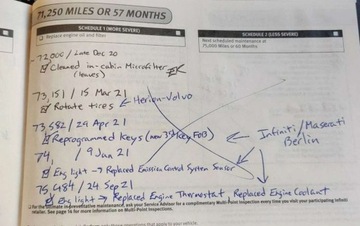 71,250 MILES OR 57 MONTHS
SCHEDULE 1 (MORE SEVERE)
Replace engine oil and filter
SCHEDULE 2 (LESS SEVERE)
Next scheduled maintenance at
75,000 Miles or 60 Months
- 72,000 / Late Dec 20
Cleaned in-cabin Microfilter
(leaves)
73,151 / 15 Mar 21
Rotate tires ← Herion-Volvo
73,582 / 29 Apr 21
Reprogrammed Keys (new 3rd key FOB) ← Infiniti/Maserati
Berlin
74, / 9 Jan 21
Eng light → Replaced Emission Control System Sensor
75,484 / 24 Sep 21
Eng light → Replaced Engine Thermostat, Replaced Engine Coolant
For the ultimate in preventative maintenance, ask your Service Advisor for a complimentary Multi-Point Inspection every time you visit your participating Infiniti
Retailer. See page 16 for more information on Multi-Point Inspections.